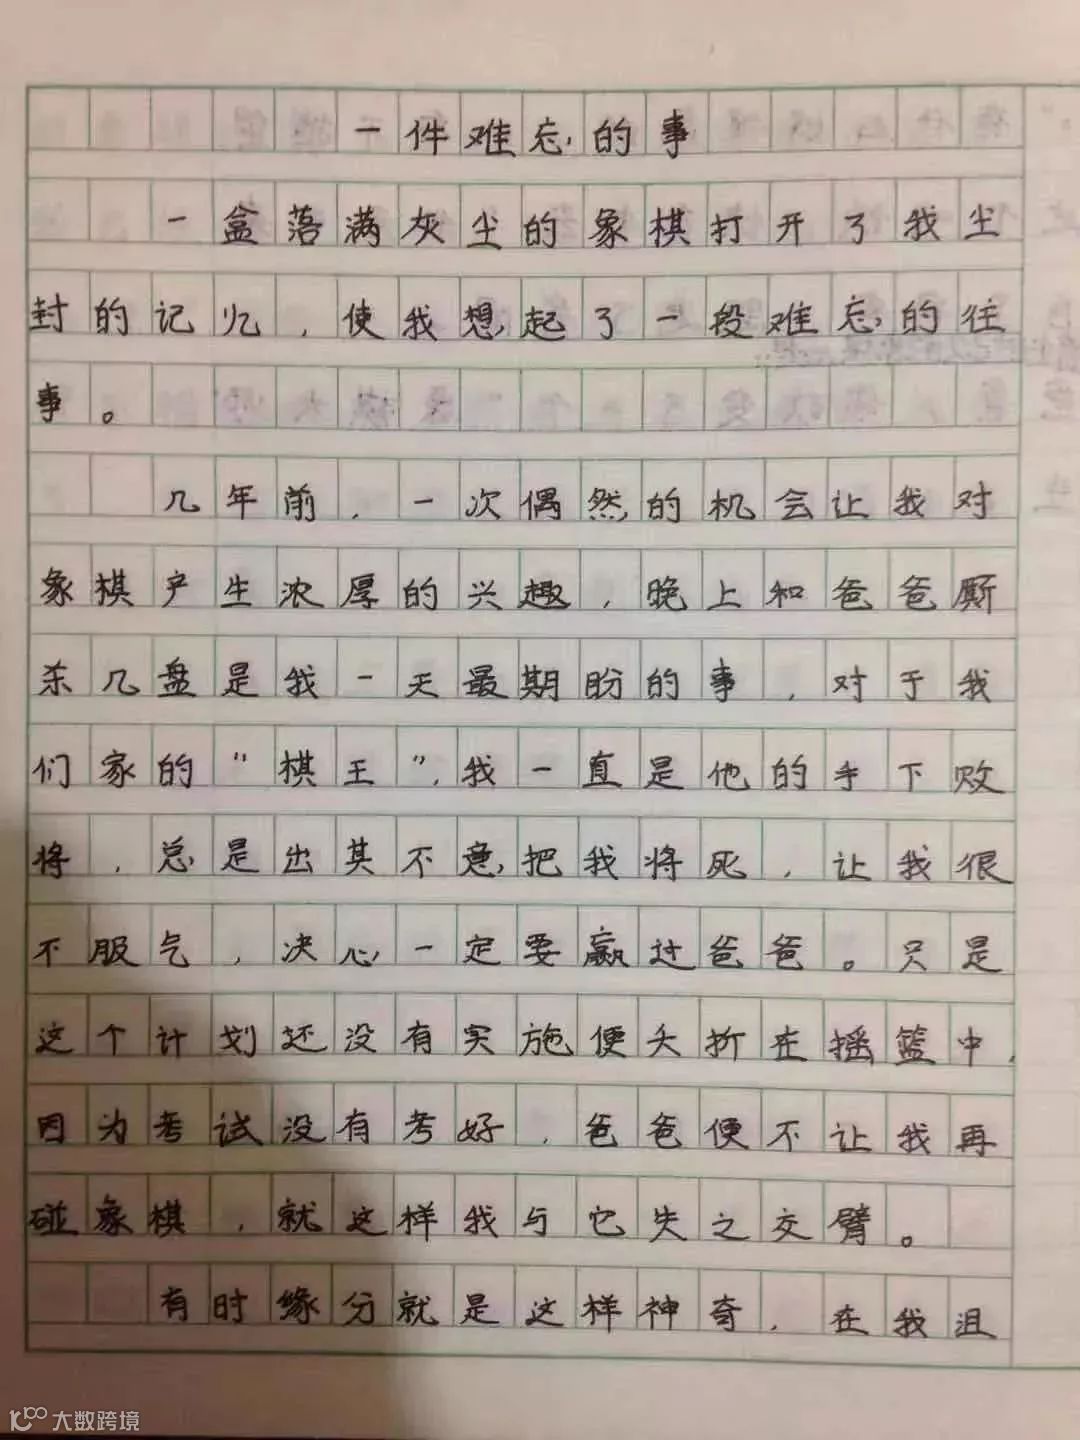 一件难忘的事
一盒落满灰尘的象棋打开了我尘
封的记忆，使我想起了一段难忘的往
事。
几年前，一次偶然的机会让我对
象棋产生浓厚的兴趣，晚上和爸爸厮
杀几盘是我一天最期盼的事，对于我
们家的“棋王”，我一直是他的手下败
将，总是出其不意把我将死，让我很
不服气，决心一定要赢过爸爸。只是
这个计划还没有实施便夭折在摇篮中，
因为考试没有考好，爸爸便不让我再
碰象棋，就这样我与它失之交臂。
有时缘分就是这样神奇，在我沮
大数跨境